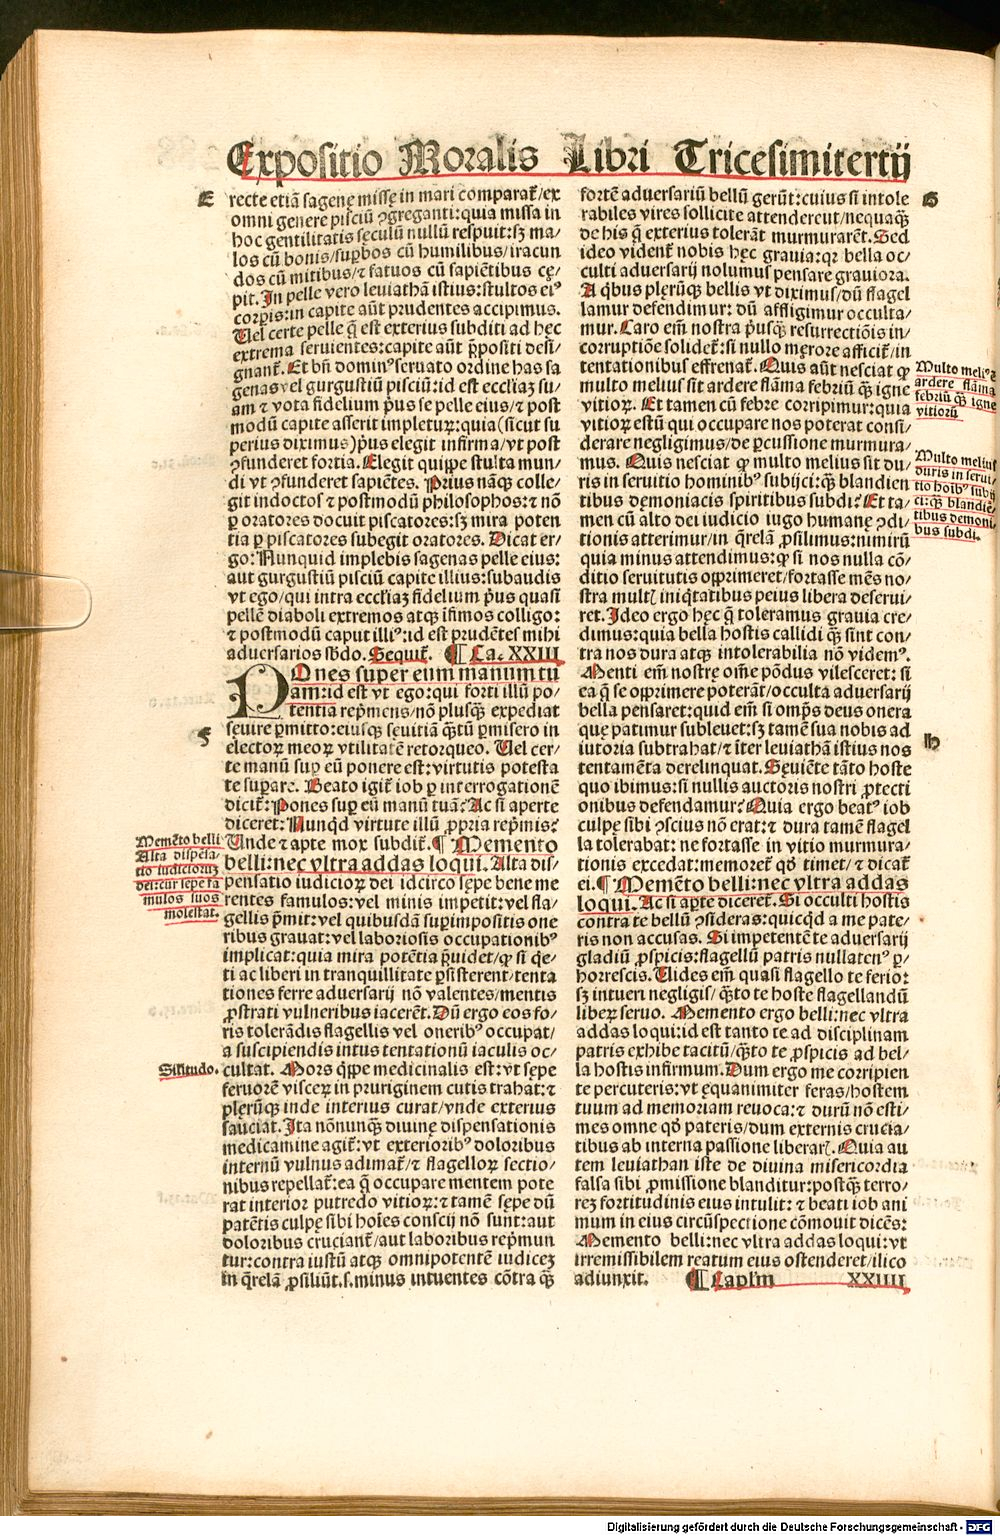 Expositio Moralis Libri Tricesimitertij
E
recte etiā sagenę missę in mari comparat᷒/ex
omni genere pisciū ꝯgreganti:quia missa in
hoc gentilitatis sęculū nullū respuit:sꝫ ma/
los cū bonis/suꝑbos cū humilibus/iracun
dos cū mitibus/⁊ fatuos cū sapiētibus cę/
pit. In pelle vero leuiathā istius:stultos eiꝰ
corꝑis:in capite aūt prudentes accipimus.
Uel certe pelle q̄ est exterius subditi ad hęc
extrema seruientes:capite aūt p̄positi desi/
gnant᷒. Et bn̄ dominꝰ seruato ordine has sa
genas vel gurgustiū pisciū:id est eccliaꝫ su/
am ⁊ vota fidelium p̄us se pelle eius/⁊ post
modū capite asserit impletur:quia(sicut su
perius diximus)p̄us elegit infirma/vt post
ꝯfunderet fortia. Elegit quiꝑpe stulta mun/
di vt ꝯfunderet sapiētes. Prius nāqꝫ colle/
git indoctos ⁊ postmodū philosophos:⁊ nō
ꝑ oratores docuit piscatores:sꝫ mira poten
tia ꝑ piscatores subegit oratores. Dicat er/
go: Nunquid implebis sagenas pelle eius:
aut gurgustiū pisciū capite illius:subaudis
vt ego/qui intra eccliaꝫ fidelium p̄us quasi
pellē diaboli extremos atqꝫ īfimos colligo:
⁊ postmodū caput illiꝰ:id est prudētes mihi
aduersarios sb̄do. Sequit᷒. ¶ Ca. XXIII
POnes super eum manum tu
am:id est vt ego:qui forti illū po/
tentia rep̄mens/nō plusqꝫ expediat
F
sęuire ꝑmitto:eiusqꝫ sęuitiā qꝫtū ꝑmisero in
electoꝝ meoꝝ vtilitatē retorqueo. Uel cer/
te manū suꝑ eū ponere est:virtutis potesta
te suꝑare. Beato igit᷒ iob ꝑ interrogationē
dicit᷒:Pones suꝑ eū manū tuā? Ac si aperte
diceret: Nunqd virtute illū ꝓpria rep̄mis?
Memēto belli
Alta dispēsa/
tio iudicioruꝫ
dei:cur sepe fa
mulos suos
molestat.
Unde ⁊ apte mox subdit᷒. ¶ Memento
belli:nec vltra addas loqui. Alta dis/
pensatio iudicioꝝ dei idcirco sępe bene me
rentes famulos:vel minis impetit:vel fla/
gellis p̄mit:vel quibusdā suꝑimpositis one
ribus grauat:vel laboriosis occupationibꝰ
implicat:quia mira potētia p̄uidet/ꝙ si q̇e/
ti ac liberi in tranquillitate ꝑsisterent/tenta
tiones ferre aduersarij nō valentes/mentis
ꝓstrati vulneribus iacerēt. Dū ergo eos fo/
ris tolerādis flagellis vel oneribꝰ occupat/
a suscipiendis intus tentationū iaculis oc/
Silitudo.
cultat. Mors qͥppe medicinalis est:vt sępe
feruorē visceꝝ in pruriginem cutis trahat:⁊
plęrūqꝫ inde interius curat/vnde exterius
sauciat. Ita nōnunqꝫ diuinę dispensationis
medicamine agit᷒:vt exterioribꝰ doloribus
internū vulnus adimat᷒/⁊ flagelloꝝ sectio/
nibus repellat᷒:ea q̄ occupare mentem pote
rat interior putredo vitioꝝ:⁊ tamē sępe dū
patētis culpę sibi hoīes conscij nō sunt:aut
doloribus cruciant᷒/aut laboribus rep̄mun
tur:contra iustū atqꝫ omnipotentē iudiceꝫ
in q̄relā ꝓsiliūt.s.minus intuentes cōtra qꝫ
G
fortē aduersariū bellū gerūt:cuius si intole
rabiles vires sollicite attenderent/nequaqꝫ
de his q̄ exterius tolerāt murmurarēt. Sed
ideo vident᷒ nobis hęc grauia:qꝛ bella oc/
culti aduersarij nolumus pensare grauiora.
A qͥbus plęrūqꝫ bellis vt diximus/dū flagel
lamur defendimur: dū affligimur occulta/
mur. Caro em̄ nostra p̄usqꝫ resurrectiōis in/
corruptiōe solidet᷒:si nullo męrore afficit᷒/in
tentationibus effrenat᷒. Quis aūt nesciat ꝙ
Multo meliꝰ ē
ardere flāma
febriū qꝫ igne
vitiorū
multo melius sit ardere flāma febriū qꝫ igne
vitioꝝ. Et tamen cū febre corripimur:quia
vitioꝝ estū qui occupare nos poterat consi/
derare negligimus/de ꝑcussione murmura/
mus. Quis nesciat ꝙ multo melius sit du/
Multo melius
duris in serui/
tio hoībꝰ subij
ci:qꝫ blandiē/
tibus demoni/
bus subdi.
ris in seruitio hominibꝰ subijci:qꝫ blandien
tibus dęmoniacis spiritibus subdi? Et ta/
men cū alto dei iudicio iugo humanę ꝯdi/
tionis atterimur/in q̄relā ꝓsilimus:nimirū
quia minus attendimus:ꝙ si nos nulla cō/
ditio seruitutis opprimeret/fortasse mēs no/
stra mult᷒ iniq̇tatibus peius libera deserui/
ret. Ideo ergo hęc q̄ toleramus grauia cre/
dimus:quia bella hostis callidi qꝫ sint con/
tra nos dura atqꝫ intolerabilia nō videmꝰ.
Menti em̄ nostrę om̄e pōdus vilesceret: si
ea q̄ se opprimere poterāt/occulta aduersarij
bella pensaret:quid em̄ si omp̄s deus onera
H
quę patimur subleuet:sꝫ tamē sua nobis ad
iutoria subtrahat/⁊ īter leuiathā istius nos
tentamēta derelinquat. Sęuiēte tāto hoste
quo ibimus:si nullis auctoris nostri ꝓtecti
onibus defendamur? Quia ergo beatꝰ iob
culpę sibi ꝯscius nō erat:⁊ dura tamē flagel
la tolerabat: ne fortasse in vitio murmura/
tionis excedat:memoret᷒ qd̄ timet/⁊ dicat᷒
ei. ¶ Memēto belli:nec vltra addas
loqui. Ac si aꝑte diceret. Si occulti hostis
contra te bellū ꝯsideras:quicqd a me pate/
ris non accusas. Si impetentē te aduersarij
gladiū ꝓspicis:flagellū patris nullatenꝰ ꝑ/
horrescis. Uides em̄ quasi flagello te ferio:
sꝫ intueri negligis/ qꝫto te hoste flagellandū
libeꝝ seruo. Memento ergo belli:nec vltra
addas loqui:id est tanto te ad disciplinam
patris exhibe tacitū/qꝫto te ꝓspicis ad bel/
la hostis infirmum. Dum ergo me corripien
te percuteris:vt ęquanimiter feras/hostem
tuum ad memoriam reuoca:⁊ durū nō esti/
mes omne qd̄ pateris/dum externis crucia/
tibus ab interna passione liberar᷒. Quia au
tem leuiathan iste de diuina misericordia
falsa sibi ꝓmissione blanditur:postqꝫ terro/
reꝫ fortitudinis eius intulit: ⁊ beati iob ani
mum in eius circūspectione cōmouit dicēs:
Memento belli:nec vltra addas loqui:vt
irremissibilem reatum eius ostenderet/ilico
adiunxit. ¶ Caplm XXIIII
Digitalisierung gefördert durch die Deutsche Forschungsgemeinschaft - DFG